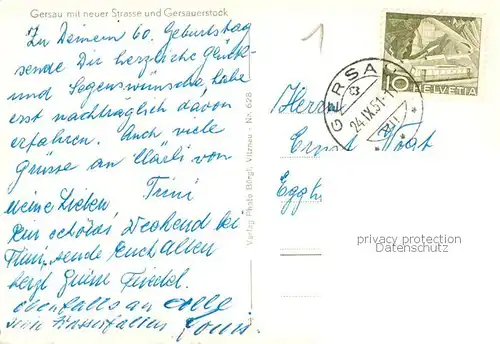 Gersau mit neuer Strasse und Gersauerstock
Zu Deinem 60. Geburtstag
sende Dir herzliche Glück-
und Segenswünsche, habe
erst nachträglich davon
erfahren. Auch viele
Grüsse an Märli von
Trini
Meine Lieben
Ein schönes Weekend bei
Trini, sende Euch Allen
herzl Grüsse Friedel.
ebenfalls an alle
Louis.
Verlag Photo Bürgi, Vitznau - Nr. 628
1
GERSAU
24.IX.51
10
HELVETIA
Herrn
Ernst Vogt
privacy protection
Datenschutz